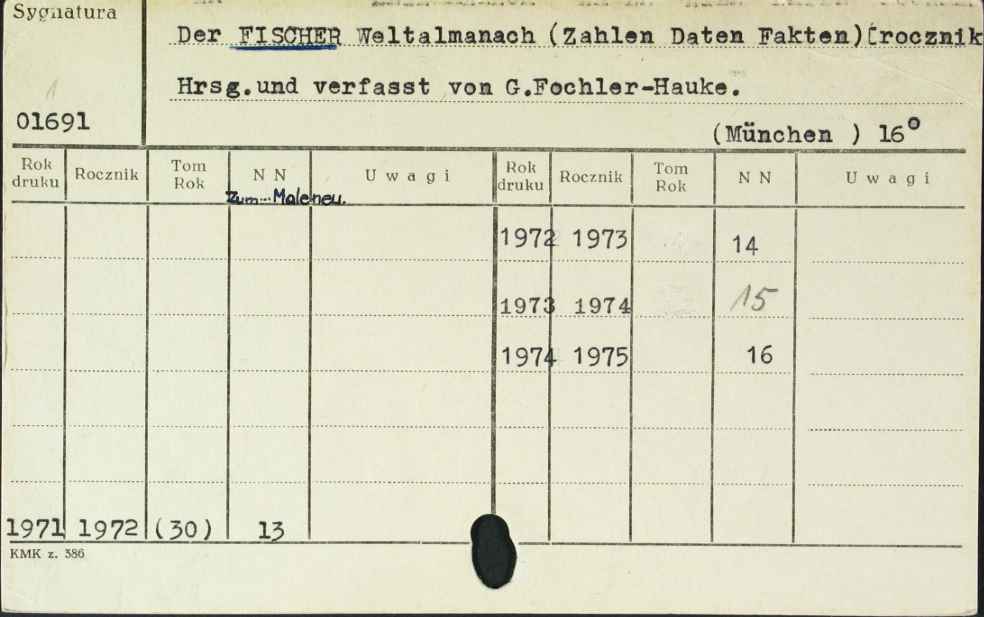 Sygnatura
Der FISCHER Weltalmanach (Zahlen Daten Fakten)[rocznik
Hrsg.und verfasst von G.Fochler-Hauke.
01691
(München ) 16°
Rok druku Rocznik Tom Rok N N U w a g i Rok druku Rocznik Tom Rok N N U w a g i
1972 1973 14
1973 1974 15
1974 1975 16
1971 1972 (30) 13
KMK z. 386